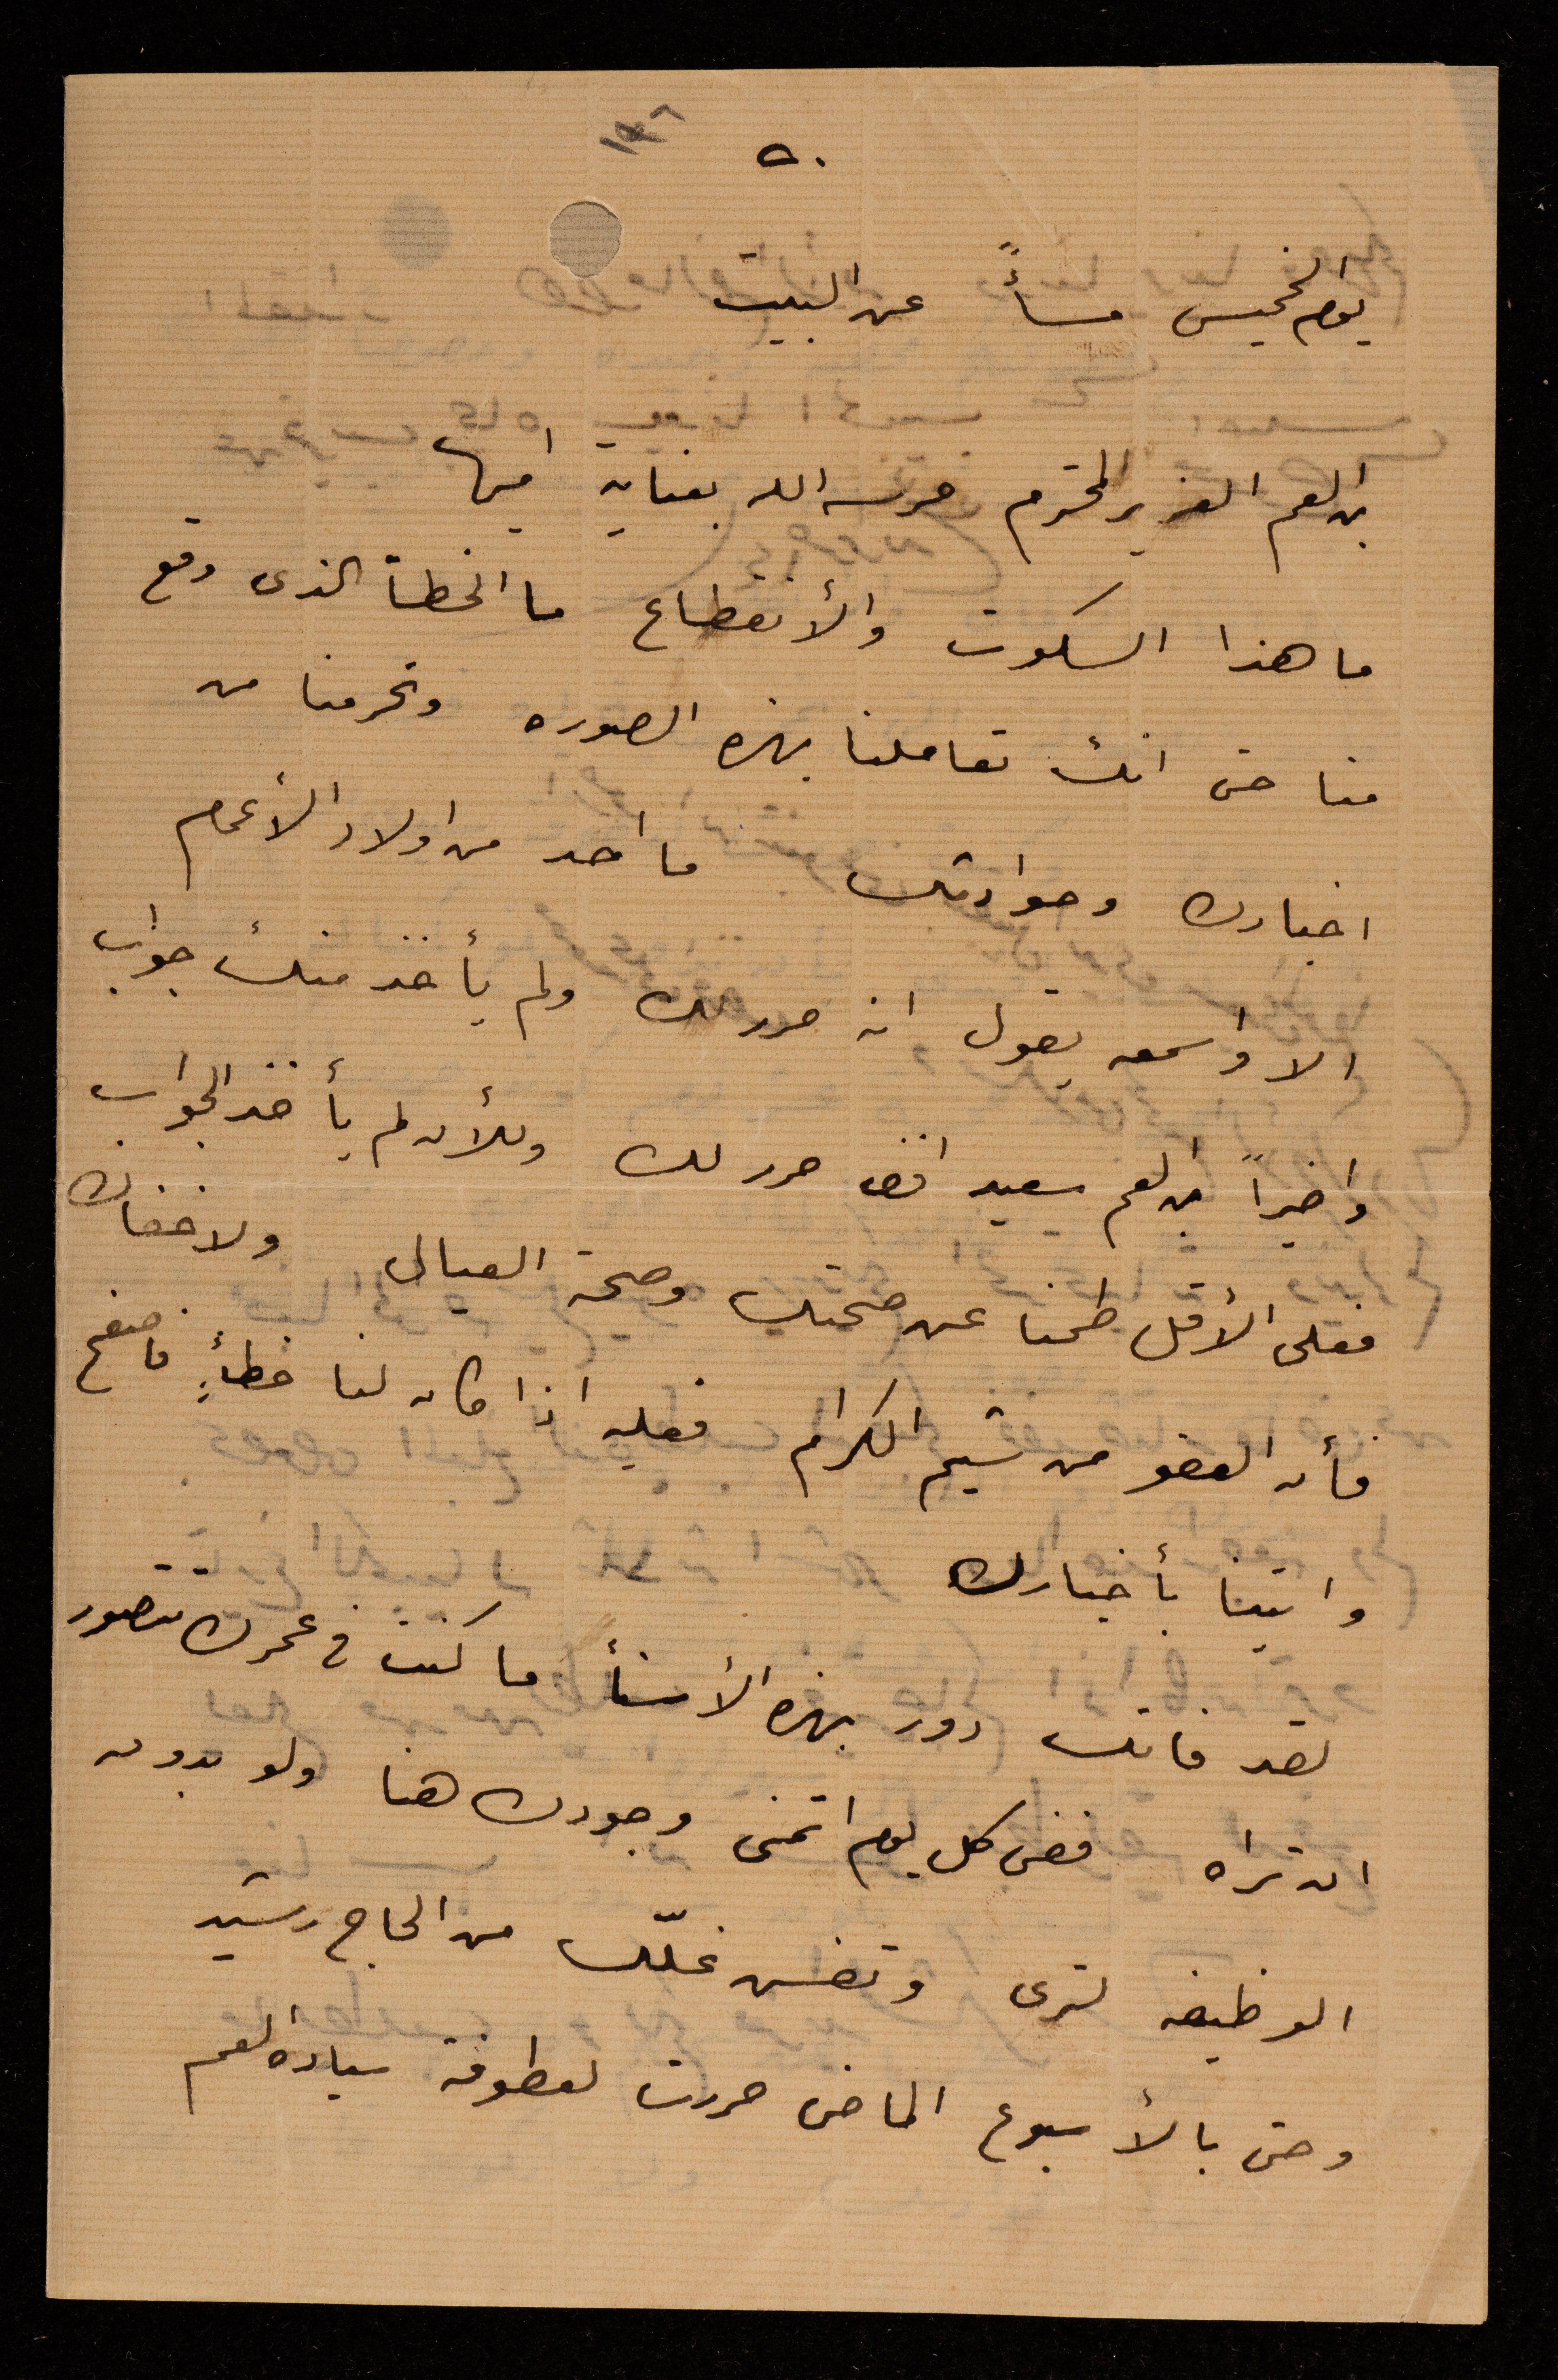 ٥٠
يوم الخميس مسأً عن البيت
بن العم العزيز المحترم حرسه الله بعنايه امين
ما هذا السكوت والأنقطاع ما الخطأ الذى وقع
منا حتى انك تعاملنا بهذه الصوره وتحرمنا من
اخبارك وحوادثك ما احد من اولاد الأعمام
الا واسمعه يقول انه حرر لك ولم يأخذ منك جواب
واخيراً بن العم سعيد افندى حرر لك وللأن لم يأخذ الجواب
فعلى الأقل طمنا عن صحتك وصحة العيال ولاخفاك
فأن العفو من شيم الكرام فعليه اذا كان لنا خطأٍ فاصفح
واتينا بأخبارك
لقد فاتك دور بهذه الأسنأ ما كنت في عمرك تتصور
ان تراه ففى كل يوم اتمنى وجودك هنا ولو بدون
الوظيفه لترى وتفش غلّك من الحاج رشيد
وحتى بالأسبوع الماضى حررت لعطوفة سيادة العم